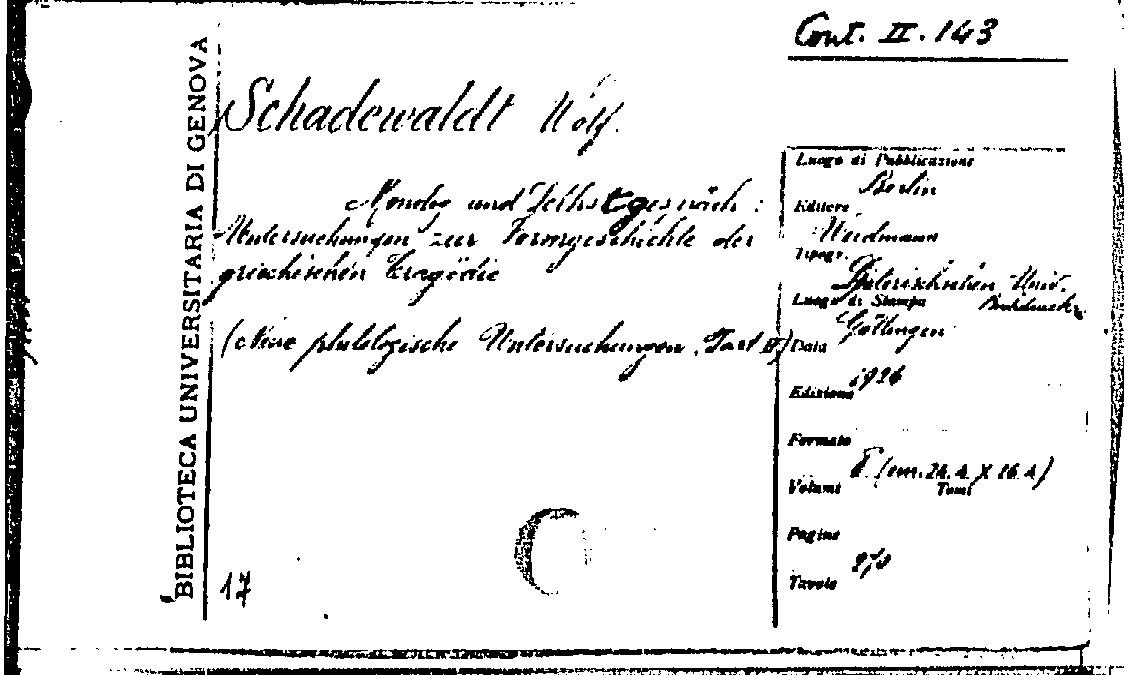 Cont. II. 143
BIBLIOTECA UNIVERSITARIA DI GENOVA
Schadewaldt Wolf.
Monolog und Selbstgespräch:
Untersuchungen zur Formgeschichte der
griechischen Tragödie
(Neue philologische Untersuchungen,
17
Luogo di Pubblicazione
Berlin
Editore
Weidmann
Tipogr.
Dieterischschen Univ.
Buchdruck
Luogo di Stampa
Göttingen
Data
1926
Edizione
Formato
8° (cm. 24.4 X 16.4)
Volumi Tomi
Pagine
270
Tavole